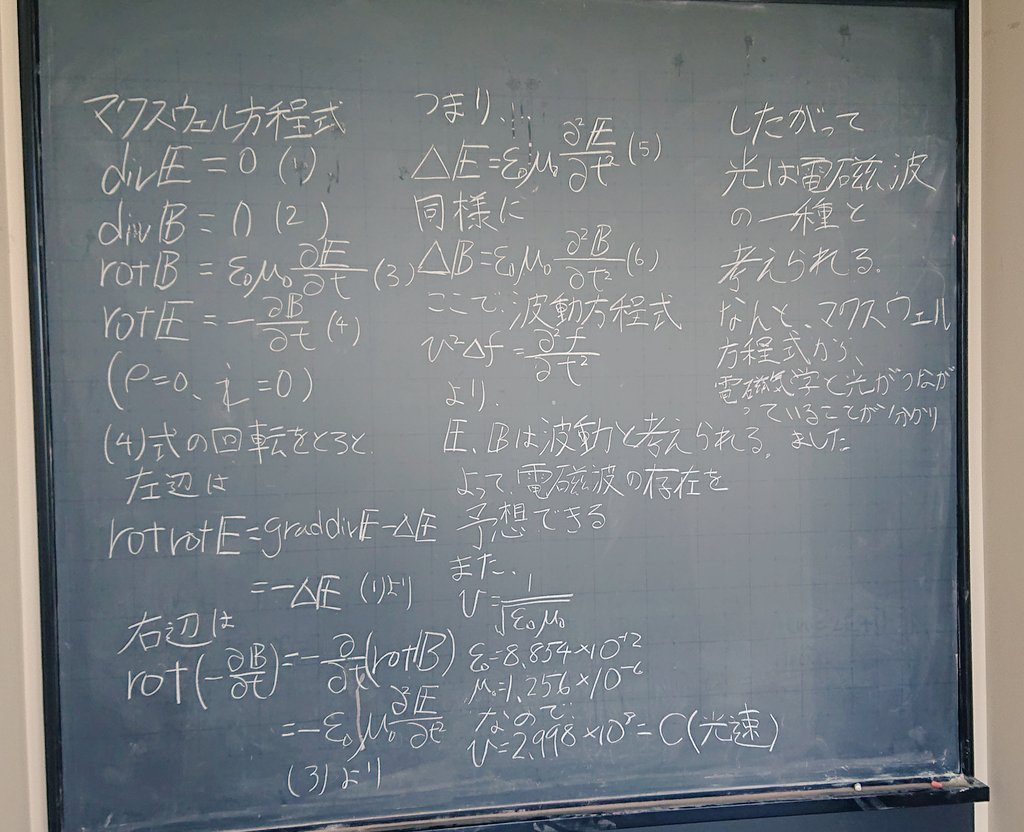 マクスウェル方程式
div𝔼 = 0 (1)
div𝔹 = 0 (2)
rot𝔹 = ε₀μ₀ ∂𝔼/∂t (3)
rot𝔼 = -∂𝔹/∂t (4)
(ρ=0、i=0)
(4)式の回転をとると
左辺は
rot rot𝔼 = grad div𝔼 - Δ𝔼
= -Δ𝔼 (1)より
右辺は
rot(-∂𝔹/∂t) = -∂/∂t(rot𝔹)
= -ε₀μ₀ ∂²𝔼/∂t²
(3)より
つまり、...
Δ𝔼 = ε₀μ₀ ∂²𝔼/∂t² (5)
同様に
Δ𝔹 = ε₀μ₀ ∂²𝔹/∂t² (6)
ここで、波動方程式
v²Δf = ∂²f/∂t²
より、
𝔼、𝔹は波動と考えられる。
よって、電磁波の存在を
予想できる
また、
v = 1/√ε₀μ₀
ε₀=8.854×10⁻¹²
μ₀=1.256×10⁻⁶
なので、
v=2.998×10⁸ = C(光速)
したがって
光は電磁波
の一種と
考えられる。
なんと、マクスウェル
方程式から、
電磁気学と光がつなが
っていることが分かり
ました